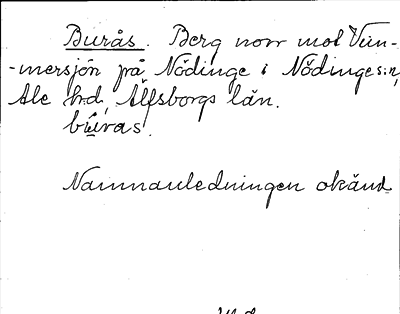 Burås. Berg norr mot Vim-
-mersjön på Nödinge i Nödinge s:n,
Ale hd, Älfsborgs län.
búras.
Namnauledningen okänd